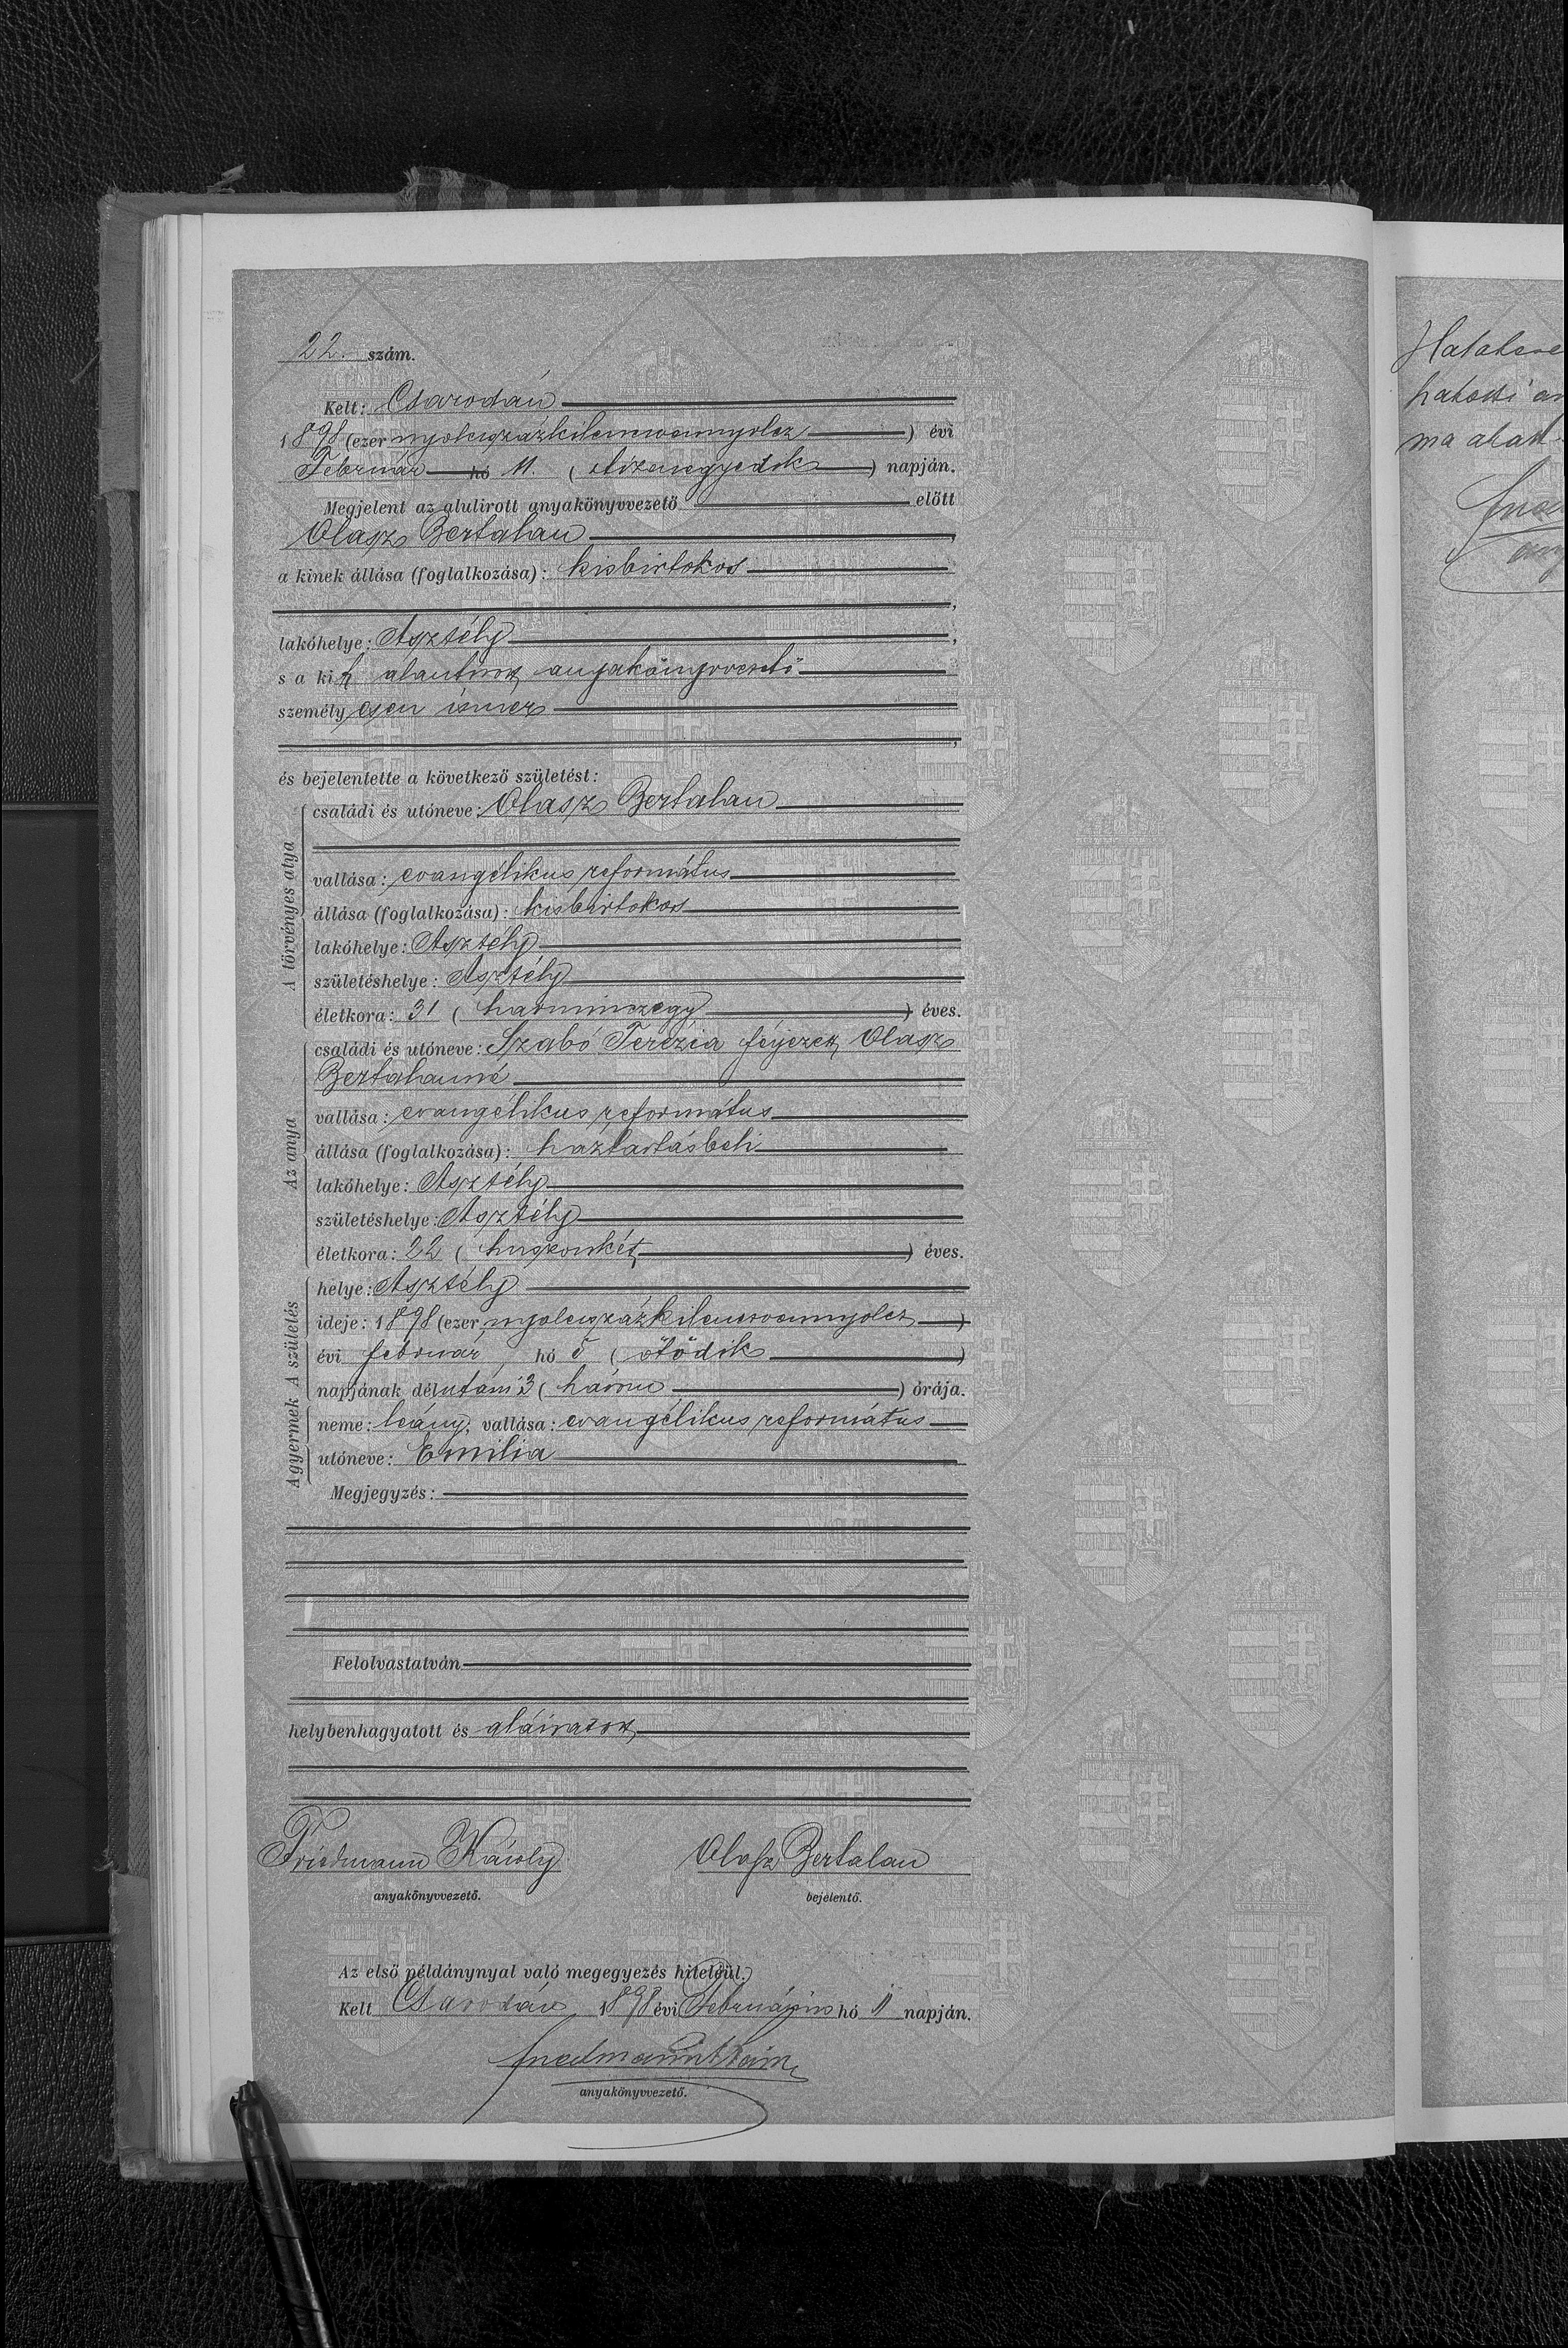 22. szám.
Kelt: Csarodán
1898 (ezer nyolczszázkilenczvennyolcz) évi
Február hó 11. (tizenegyedik) napján.
Megjelent az alulirott anyakönyvvezető előtt
Olasz Bertalan,
a kinek állása (foglalkozása): kisbirtokos
lakóhelye: Asztély,
s a kit alantirott anyakönyvvezető
személyesen ismer,
és bejelentette a következő születést:
A törvényes atya
családi és utóneve: Olasz Bertalan
vallása: evangélikus református
állása (foglalkozása): kisbirtokos
lakóhelye: Asztély
születéshelye: Asztély
életkora: 31 (harminczegy) éves.
Az anya
családi és utóneve: Szabó Terézia férjezett Olasz
Bertalanné
vallása: evangélikus református
állása (foglalkozása): háztartásbeli
lakóhelye: Asztély
születéshelye: Asztély
életkora: 22 (huszonkét) éves.
A gyermek A születés
helye: Asztély
ideje: 1898 (ezer nyolczszázkilenczvennyolcz)
évi február hó 5 (ötödik)
napjának délutáni 3 (három) órája.
neme: leány, vallása: evangélikus református
utóneve: Emilia
Megjegyzés:
Felolvastatván
helybenhagyatott és aláiratott
Friedmann Károly Olasz Bertalan
anyakönyvvezető. bejelentő.
Az első példánynyal való megegyezés hiteléül.
Kelt Csarodán, 1898 évi Február hó 11 napján.
anyakönyvvezető.
ma alatt